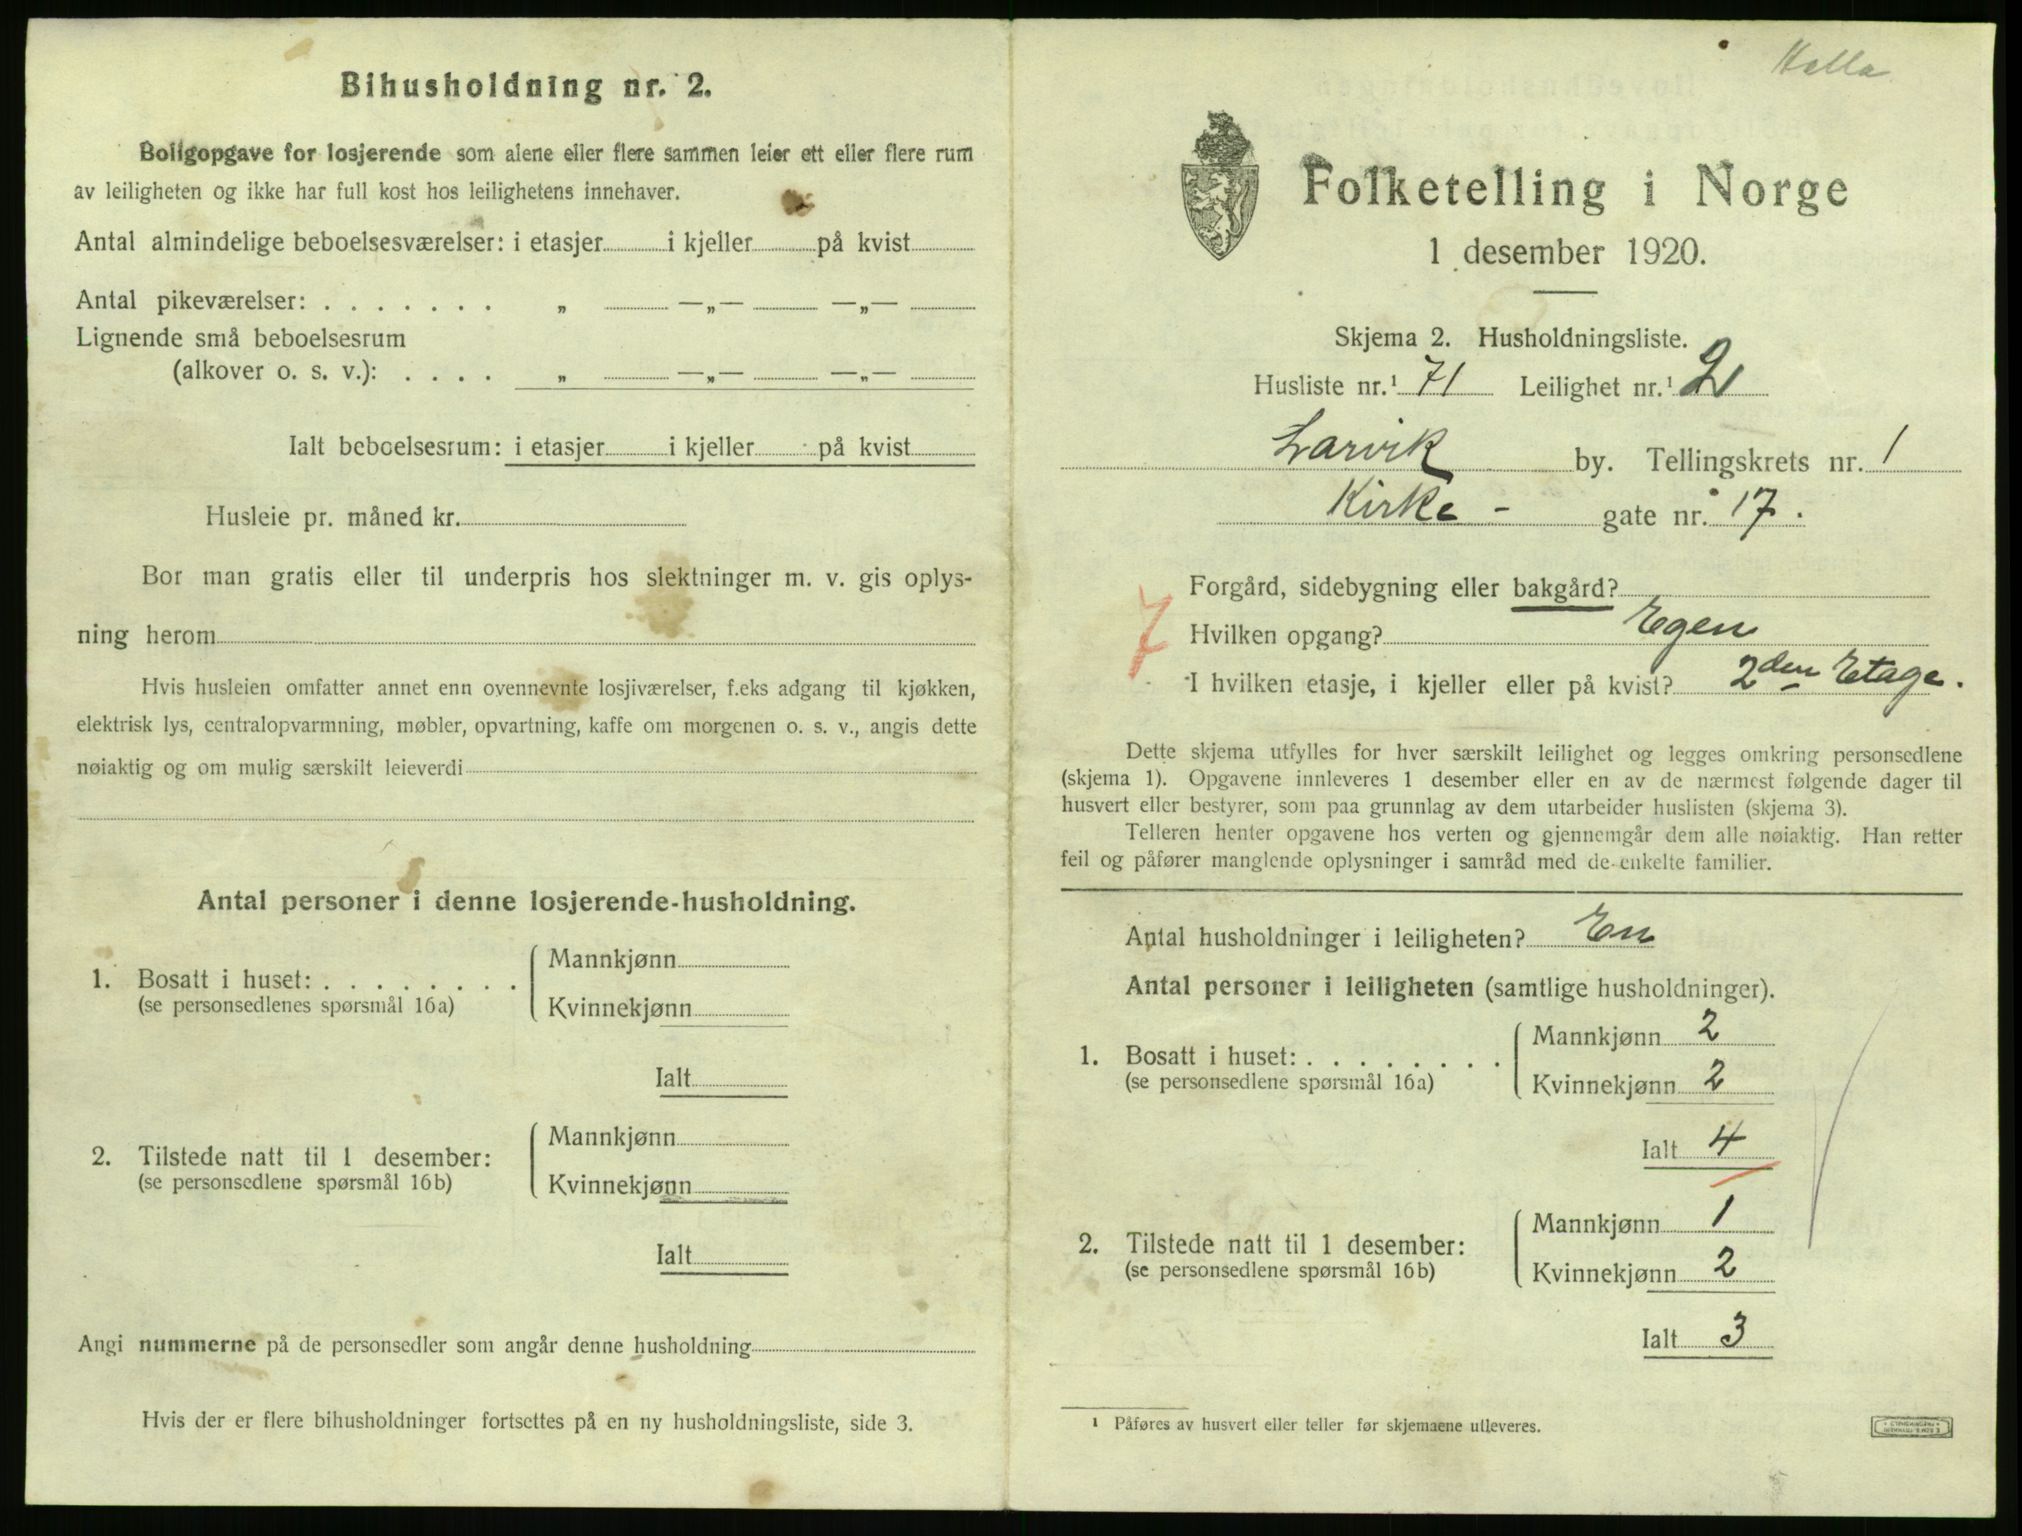 Bihusholdning nr. 2.
Boligopgave for losjerende som alene eller flere sammen leier ett eller flere rum
av leiligheten og ikke har full kost hos leilighetens innehaver.
Antal almindelige beboelsesværelser: i etasjer i kjeller på kvist
Antal pikeværelser: . . . . . . . „ —„— —„—
Lignende små beboelsesrum
(alkover o. s. v.): . . . . „ —„— —„—
Ialt beboelsesrum: i etasjer i kjeller på kvist
Husleie pr. måned kr.
Bor man gratis eller til underpris hos slektninger m. v. gis oplys-
ning herom
Hvis husleien omfatter annet enn ovennevnte losjiværelser, f.eks adgang til kjøkken,
elektrisk lys, centralopvarmning, møbler, opvartning, kaffe om morgenen o. s. v., angis dette
nøiaktig og om mulig særskilt leieverdi
Antal personer i denne losjerende-husholdning.
1. Bosatt i huset: . . . . . . . . Mannkjønn
(se personsedlenes spørsmål 16a) Kvinnekjønn
Ialt
2. Tilstede natt til 1 desember: Mannkjønn
(se personsedlene spørsmål 16b) Kvinnekjønn
Ialt
Angi nummerne på de personsedler som angår denne husholdning
Hvis der er flere bihusholdninger fortsettes på en ny husholdningsliste, side 3.
Folketelling i Norge
1 desember 1920.
Skjema 2. Husholdningsliste.
Husliste nr.¹ 71 Leilighet nr.¹ 2
Larvik by. Tellingskrets nr. 1
Kirke - gate nr. 17.
Forgård, sidebygning eller bakgård?
7 Hvilken opgang? Egen
I hvilken etasje, i kjeller eller på kvist? 2den Etage.
Dette skjema utfylles for hver særskilt leilighet og legges omkring personsedlene
(skjema 1). Opgavene innleveres 1 desember eller en av de nærmest følgende dager til
husvert eller bestyrer, som paa grunnlag av dem utarbeider huslisten (skjema 3).
Telleren henter opgavene hos verten og gjennemgår dem alle nøiaktig. Han retter
feil og påfører manglende oplysninger i samråd med de enkelte familier.
Antal husholdninger i leiligheten? En
Antal personer i leiligheten (samtlige husholdninger).
1. Bosatt i huset: . . . . . . . . Mannkjønn 2
(se personsedlene spørsmål 16a) Kvinnekjønn 2
Ialt 4
2. Tilstede natt til 1 desember: Mannkjønn 1
(se personsedlene spørsmål 16b) Kvinnekjønn 2
Ialt 3
¹ Påføres av husvert eller teller før skjemaene utleveres.